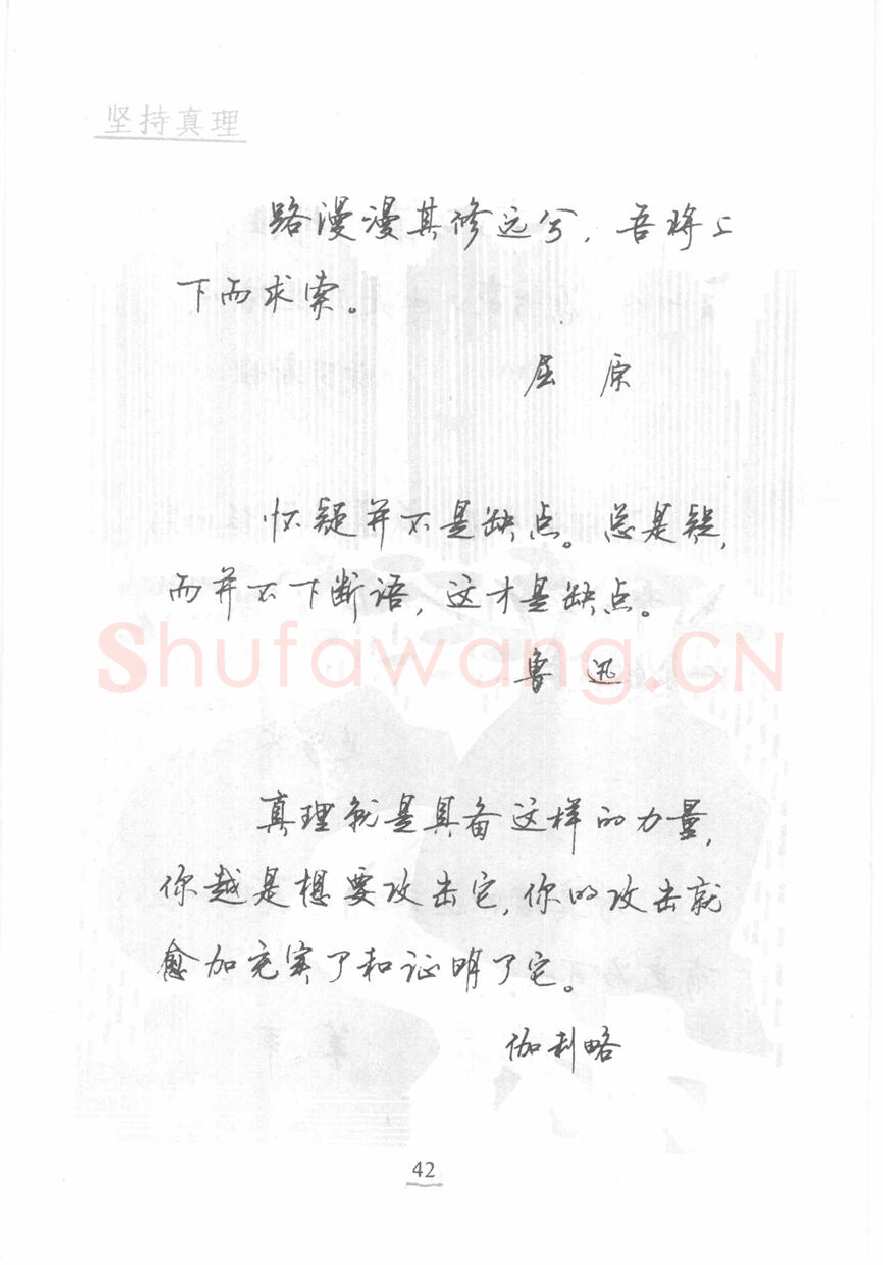 坚持真理
路漫漫其修远兮，吾将上
下而求索。
屈 原
怀疑并不是缺点。总是疑，
而并不下断语，这才是缺点。
Shufawang.CN
鲁 迅
真理就是具备这样的力量，
你越是想要攻击它，你的攻击就
愈加充实了和证明了它。
伽利略
42